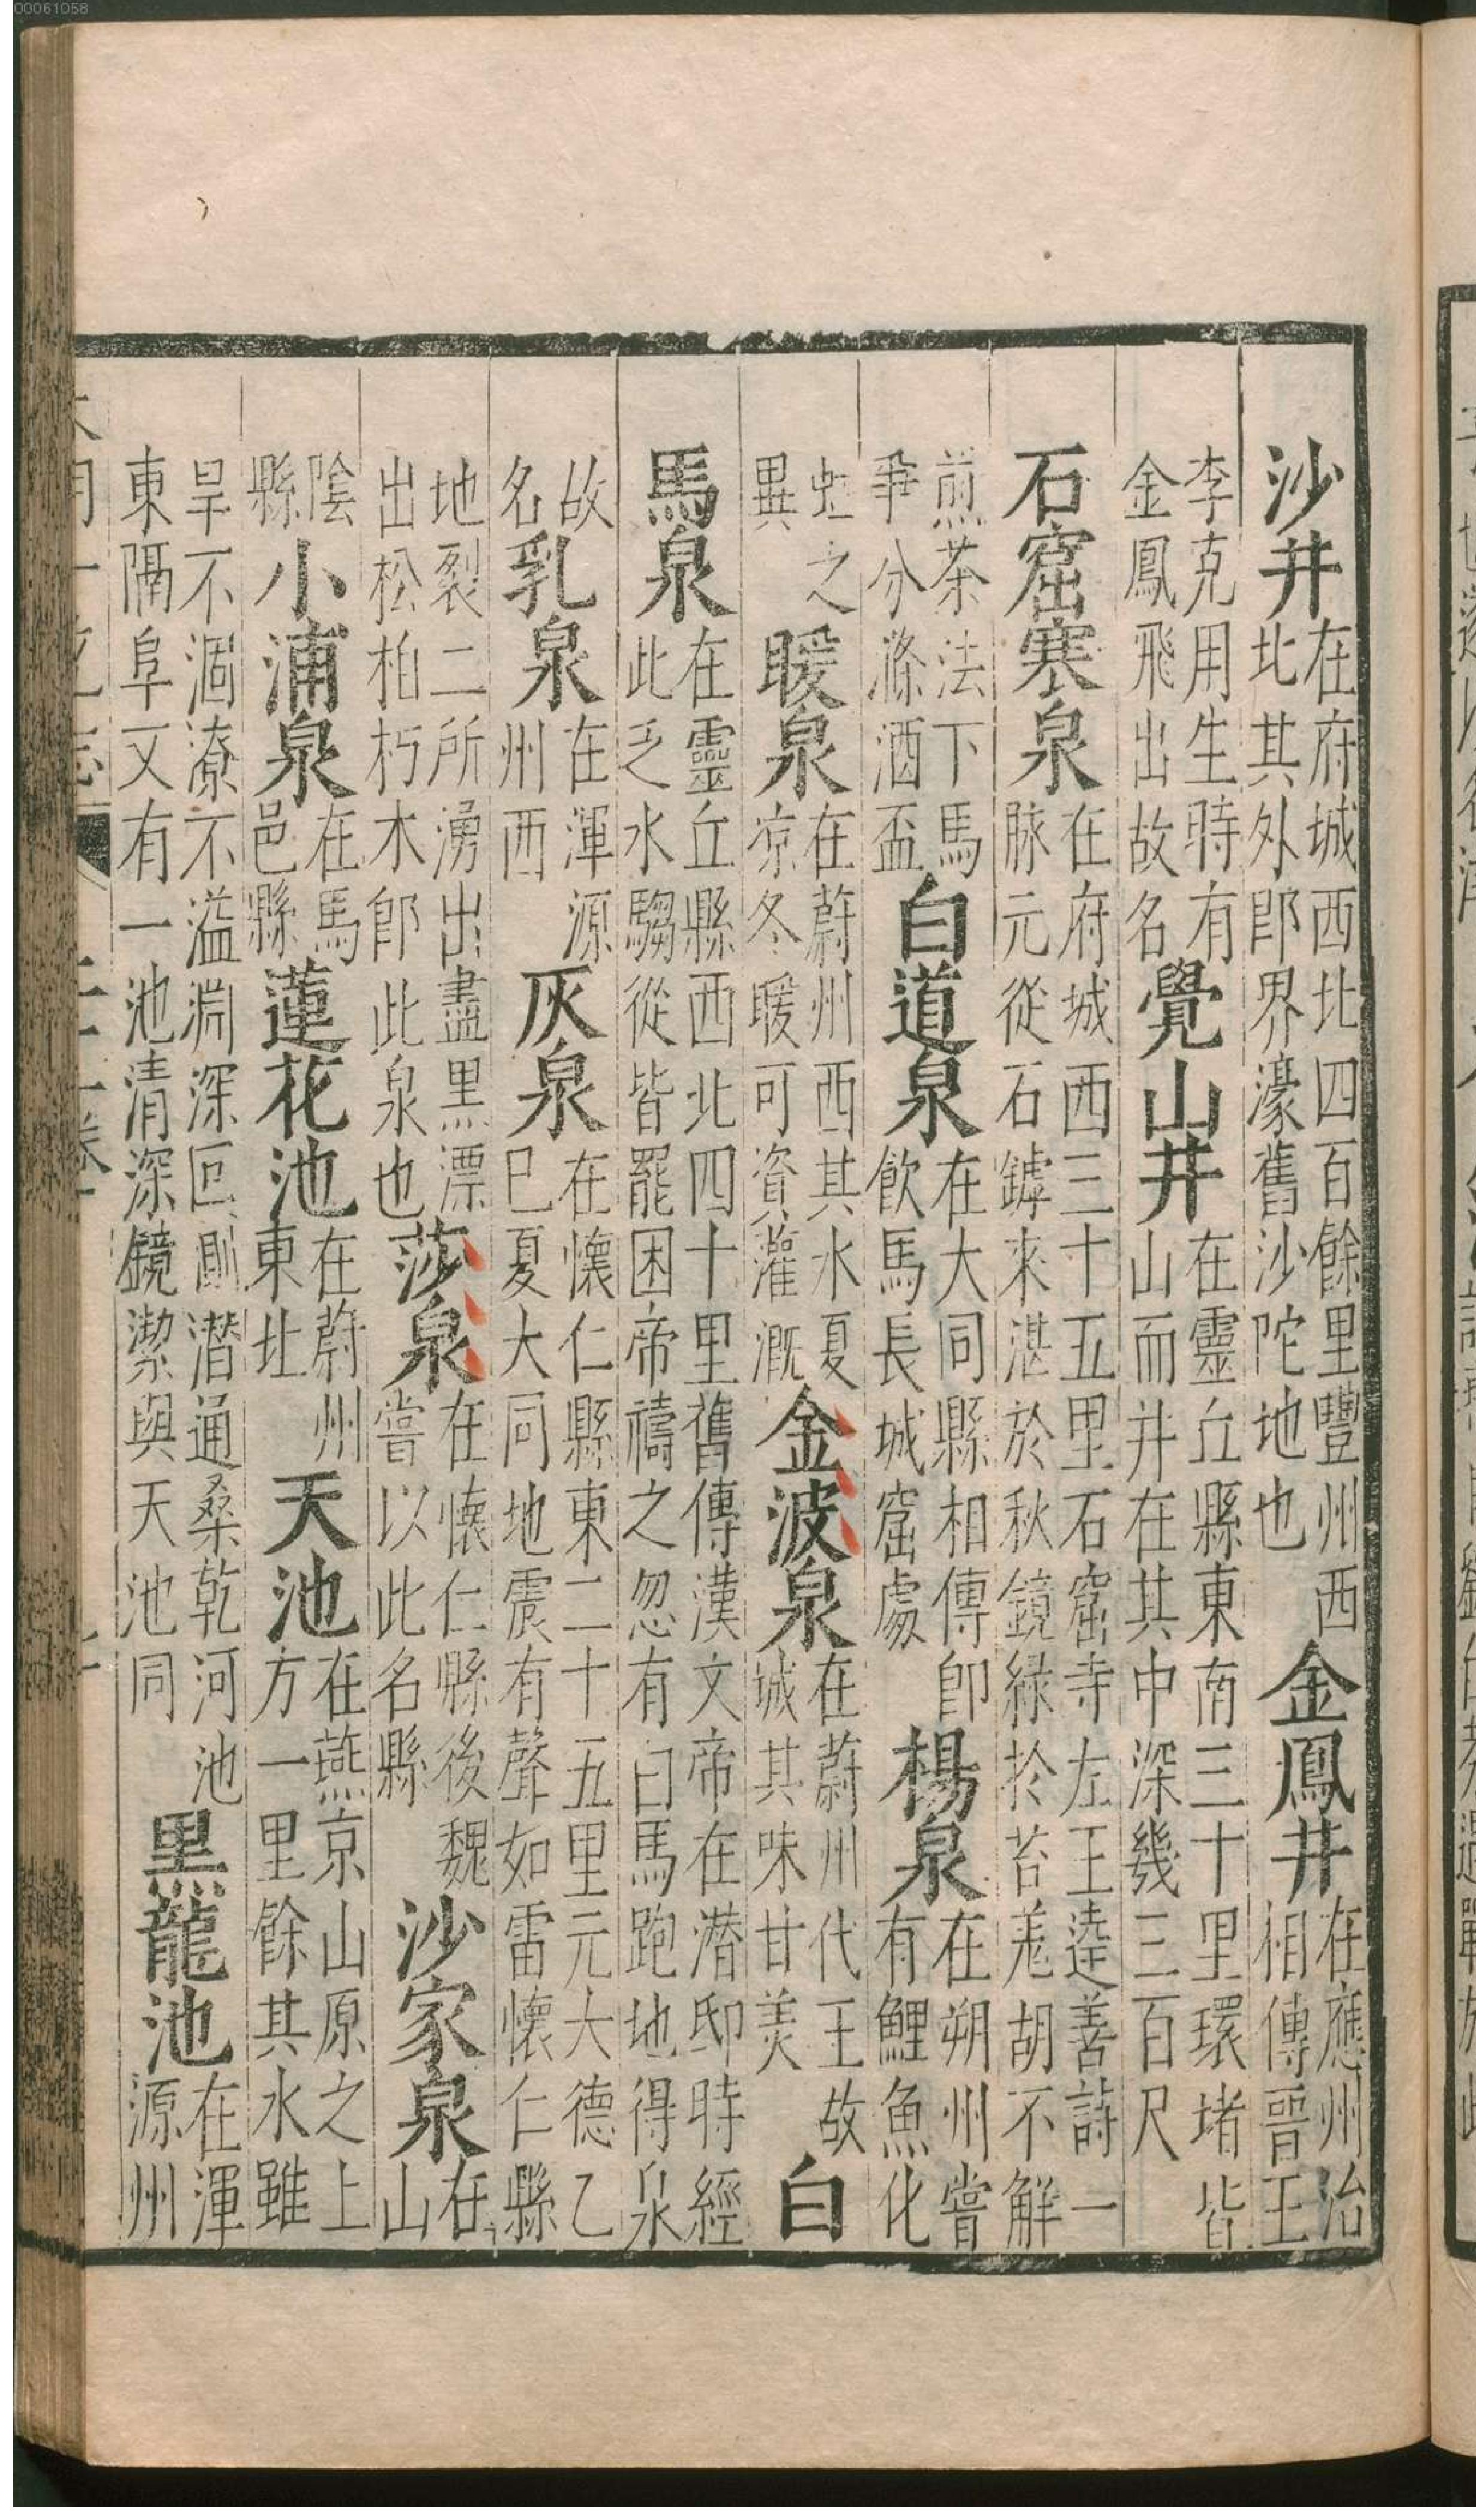 沙井在府城西北四百餘里豐州西北其外即界濠舊沙陀地也金鳳井在應州治相傳晉王
李克用生時有金鳳飛出故名覺山井在靈丘縣東南三十里環堵皆山而井在其中深幾三百尺
石窟寒泉在府城西三十五里石窟寺左王逵善詩一脉元從石罅來湛於秋鏡緑扵苔羗胡不解
煎茶法下馬爭分滌酒盃白道泉在大同縣相傳即飲馬長城窟處楊泉在朔州嘗有鯉魚化
虵之異暖泉在蔚州西其水夏凉冬暖可資灌溉金波泉在蔚州代王故城其味甘美白
馬泉在靈丘縣西北四十里舊傳漢文帝在潜邸時經此乏水騶從皆罷困帝禱之忽有白馬跑地得泉
故名乳泉在渾源州西灰泉在懷仁縣東二十五里元大德乙巳夏大同地震有聲如雷懷仁縣
地裂二所湧出水盡黒漂出松柏朽木即此泉也莎泉在懷仁縣後魏嘗以此名縣沙家泉在山
陰縣小浦泉在馬邑縣蓮花池在蔚州東北天池在燕京山原之上方一里餘其水雖
旱不涸潦不溢淵深叵測潛通桑乾河池東隔阜又有一池清深鏡潔與天池同黒龍池在渾源州
00061058